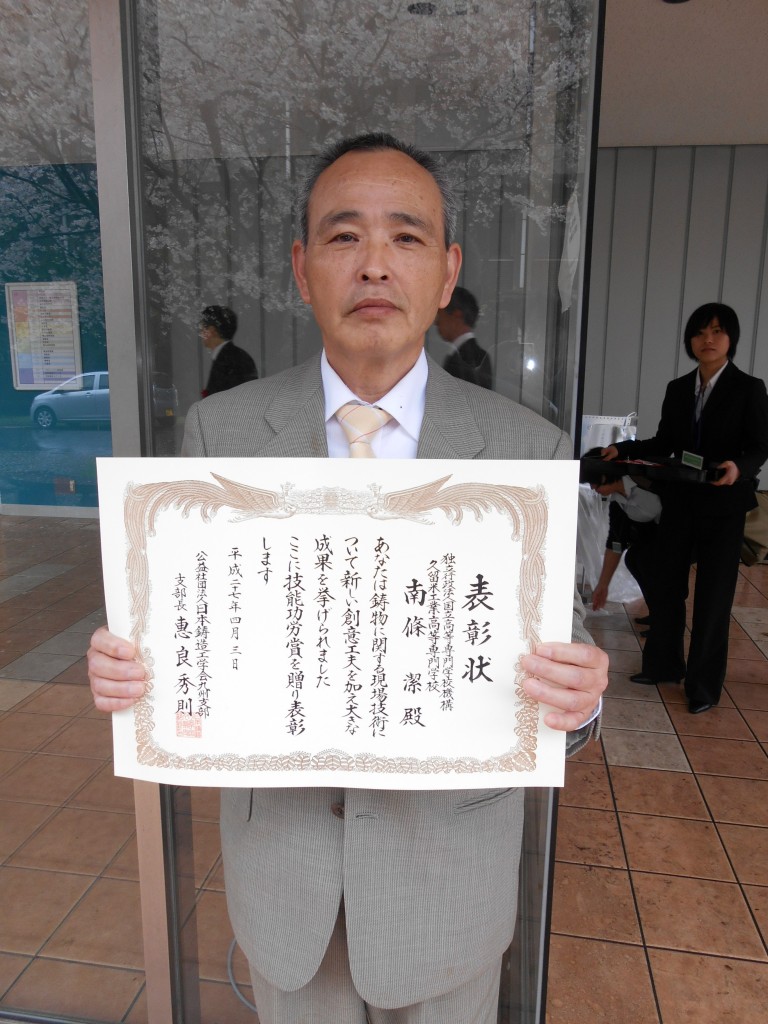 表彰状
独立行政法人国立高等専門学校機構
久留米工業高等専門学校
南條 潔 殿
あなたは鋳物に関する現場技術に
ついて新しい創意工夫を加え大きな
成果を挙げられました
ここに技能功労賞を贈り表彰
します
平成二十七年四月三日
公益社団法人日本鋳造工学会九州支部
支部長 恵良秀則